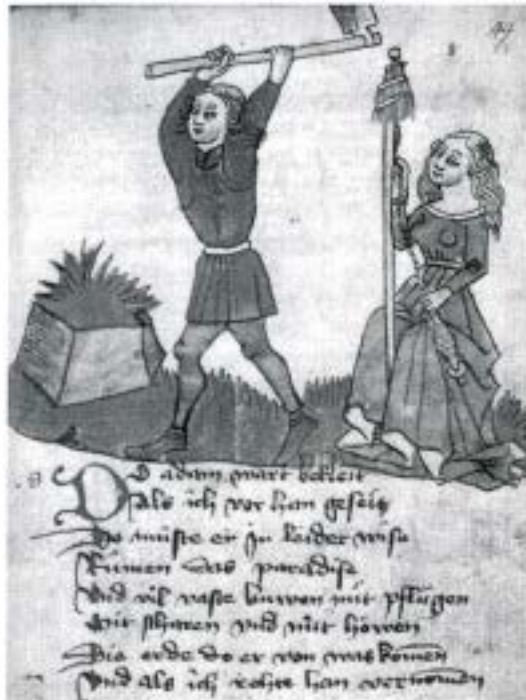 Do adam wart bekleit
Als ich vor han geseit
Do muste er in leider wise
Rumen das paradise
Vnd vil vaste buwen mit pflugen
Mit scharen vnd mit howen
Die erde do er von was komen
Vnd als ich rehte han vernomen